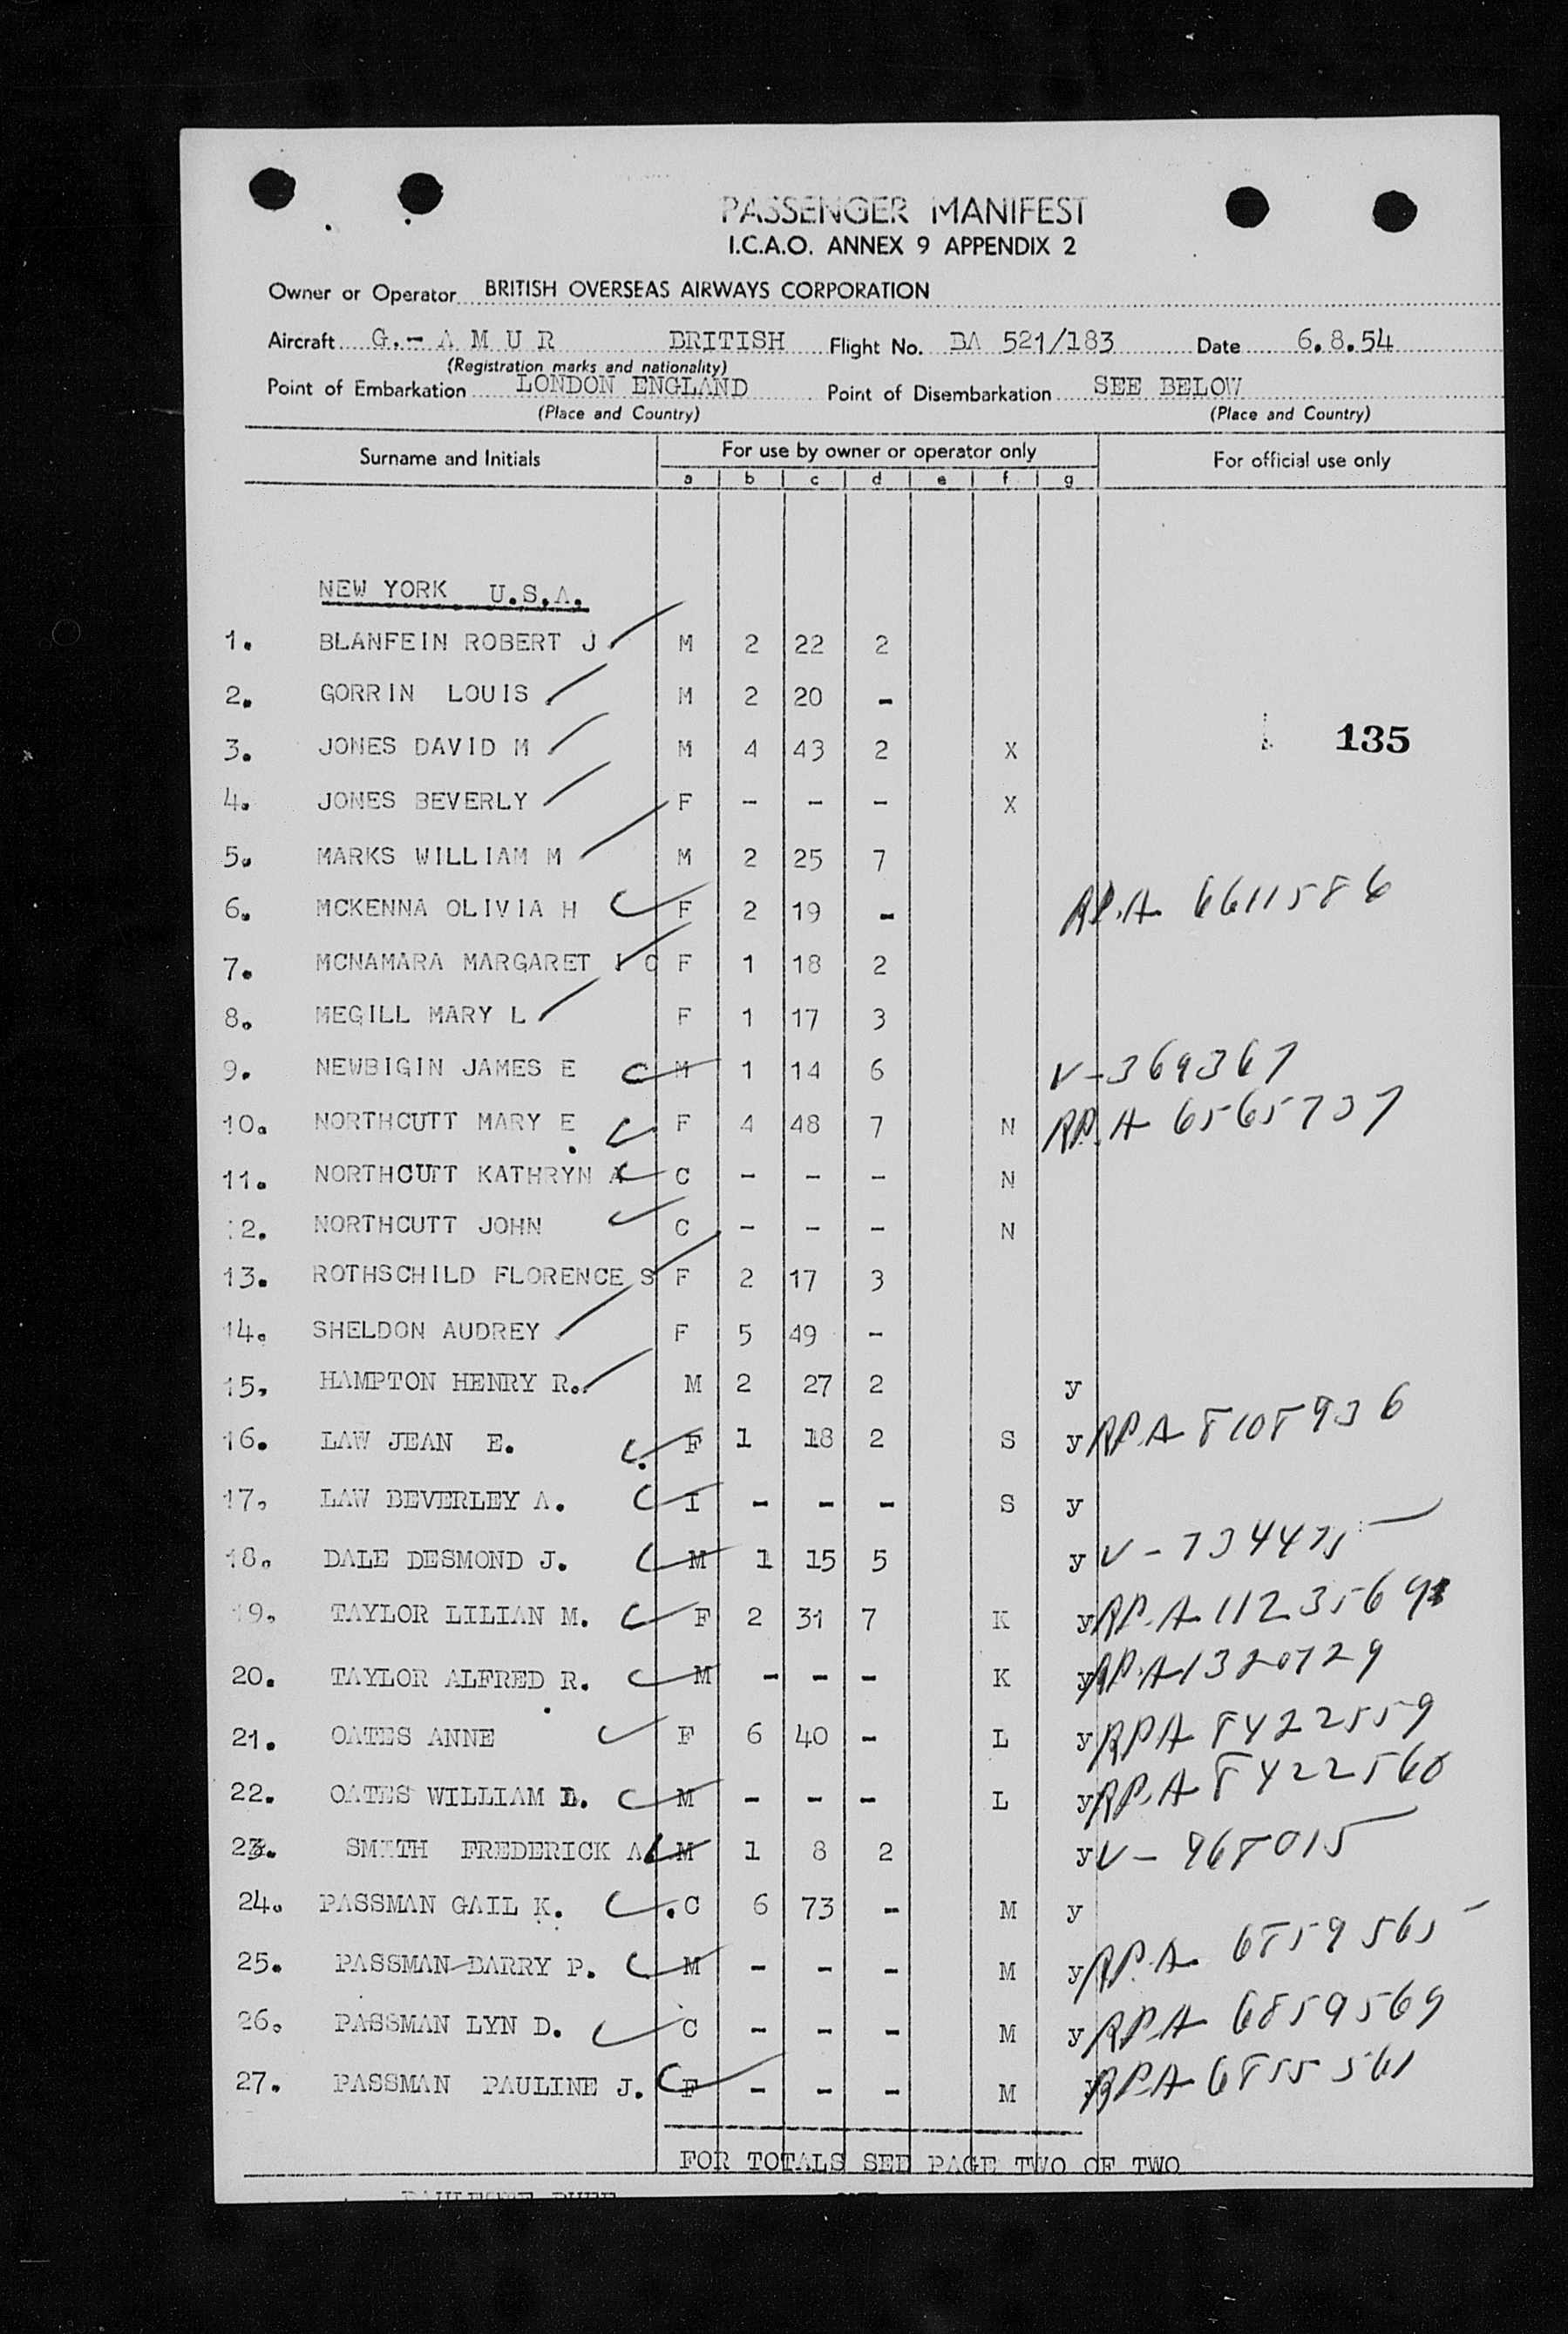 PASSENGER MANIFEST
I.C.A.O. ANNEX 9 APPENDIX 2
Owner or Operator BRITISH OVERSEAS AIRWAYS CORPORATION
Aircraft G.- A M U R BRITISH Flight No. BA 521/183 Date 6.8.54
(Registration marks and nationality)
Point of Embarkation LONDON ENGLAND Point of Disembarkation SEE BELOW
(Place and Country) (Place and Country)
Surname and Initials For use by owner or operator only For official use only
a b c d e f g
NEW YORK U.S.A.
1. BLANFEIN ROBERT J M 2 22 2
2. GORRIN LOUIS M 2 20 -
3. JONES DAVID M M 4 43 2 X 135
4. JONES BEVERLY F - - - X
5. MARKS WILLIAM M M 2 25 7
6. MCKENNA OLIVIA H C F 2 19 - RP.A 6611586
7. MCNAMARA MARGARET I C F 1 18 2
8. MEGILL MARY L F 1 17 3
9. NEWBIGIN JAMES E C M 1 14 6 V-369367
10. NORTHCUTT MARY E C F 4 48 7 N RP.A 6565737
11. NORTHCUTT KATHRYN A C C - - - N
12. NORTHCUTT JOHN C C - - - N
13. ROTHSCHILD FLORENCE S F 2 17 3
14. SHELDON AUDREY F 5 49 -
15. HAMPTON HENRY R. M 2 27 2 y
16. LAW JEAN E. C F 1 18 2 S y RP.A 8108936
17. LAW BEVERLEY A. C I - - - S y
18. DALE DESMOND J. C M 1 15 5 y V-734475
19. TAYLOR LILIAN M. C F 2 31 7 K y RP.A 11235691
20. TAYLOR ALFRED R. C M - - - K y RP.A 1320729
21. OATES ANNE C F 6 40 - L y RPA 8422559
22. OATES WILLIAM D. C M - - - L y RP.A 8422560
23. SMITH FREDERICK A C M 1 8 2 y V-968015
24. PASSMAN GAIL K. C C 6 73 - M y
25. PASSMAN BARRY P. C M - - - M y RP.A 6859565
26. PASSMAN LYN D. C C - - - M y RPA 6859569
27. PASSMAN PAULINE J. C F - - - M y RPA 6855561
FOR TOTALS SEE PAGE TWO OF TWO